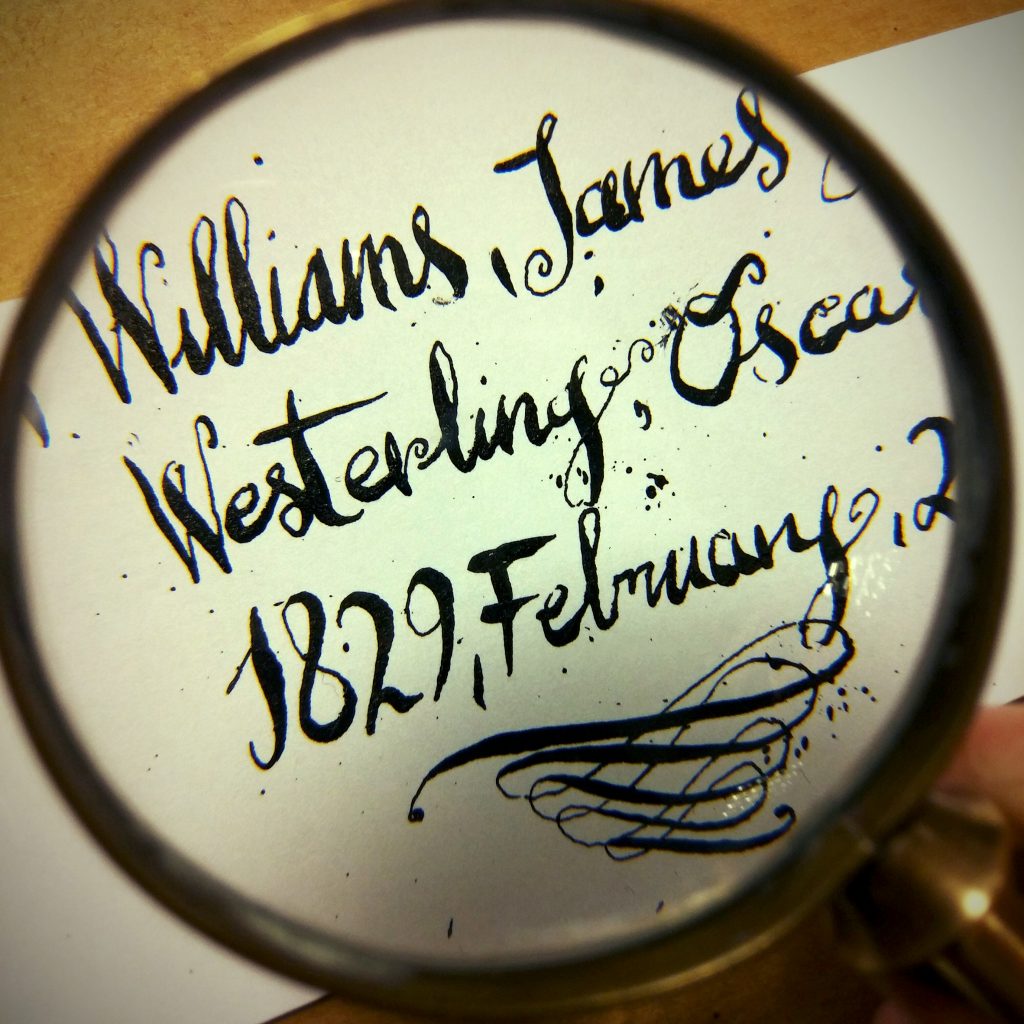 Williams, James
Westerling, Oscar
1829, February, 2